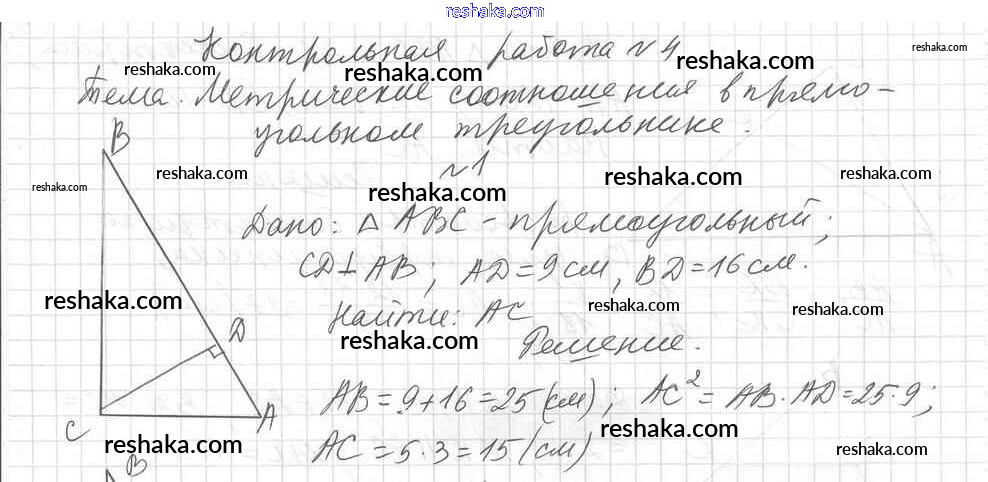 reshaka.com
Контрольная работа №4
reshaka.com reshaka.com reshaka.com reshaka.com
Тема. Метрические соотношения в прямо-
угольном треугольнике.
B
№1
reshaka.com reshaka.com reshaka.com reshaka.com reshaka.com
Дано: △ ABC - прямоугольный;
CD⊥AB; AD=9см, BD=16см.
reshaka.com reshaka.com reshaka.com
Найти: AC
D
reshaka.com
Решение.
AB=9+16=25(см); AC²=AB·AD=25·9;
C A
reshaka.com reshaka.com reshaka.com
AC=5·3=15(см)
B